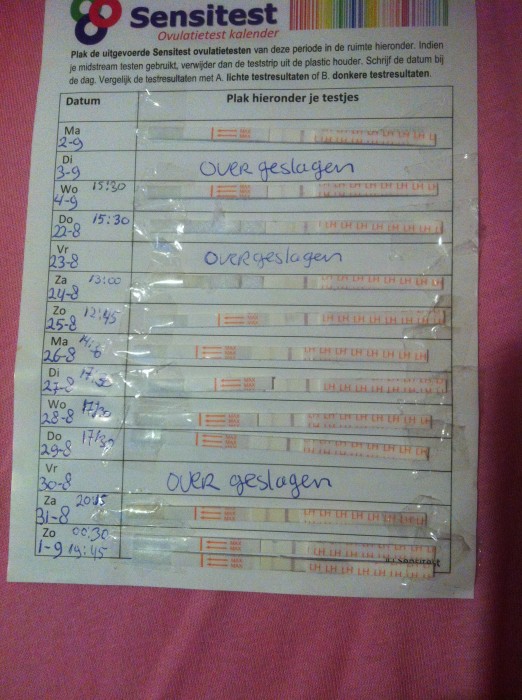 Sensitest
Ovulatietest kalender
Plak de uitgevoerde Sensitest ovulatietesten van deze periode in de ruimte hieronder. Indien
je midstream testen gebruikt, verwijder dan de teststrip uit de plastic houder. Schrijf de datum bij
de dag. Vergelijk de testresultaten met A. lichte testresultaten of B. donkere testresultaten.
Datum Plak hieronder je testjes
Ma
2-9
Di
3-9 OVERgeslagen
Wo 15:30
4-9
Do 15:30
22-8 LH LH LH LH LH LH LH
Vr
23-8 OVERgeslagen
Za 13:00
24-8 LH LH LH LH LH LH LH
Zo 12:45
25-8
Ma
26-8 LH LH LH LH LH LH LH
Di
27-8 LH LH LH LH LH LH LH
Wo
28-8 LH LH LH LH LH LH LH
Do 17:30
29-8 LH LH LH LH LH LH LH
Vr
30-8 OVER geslagen
Za 20:15
31-8 LH LH LH LH LH LH LH
Zo 00:30
1-9 19:45 LH LH LH LH LH LH LH
Sensitest
LH LH LH LH LH LH LH